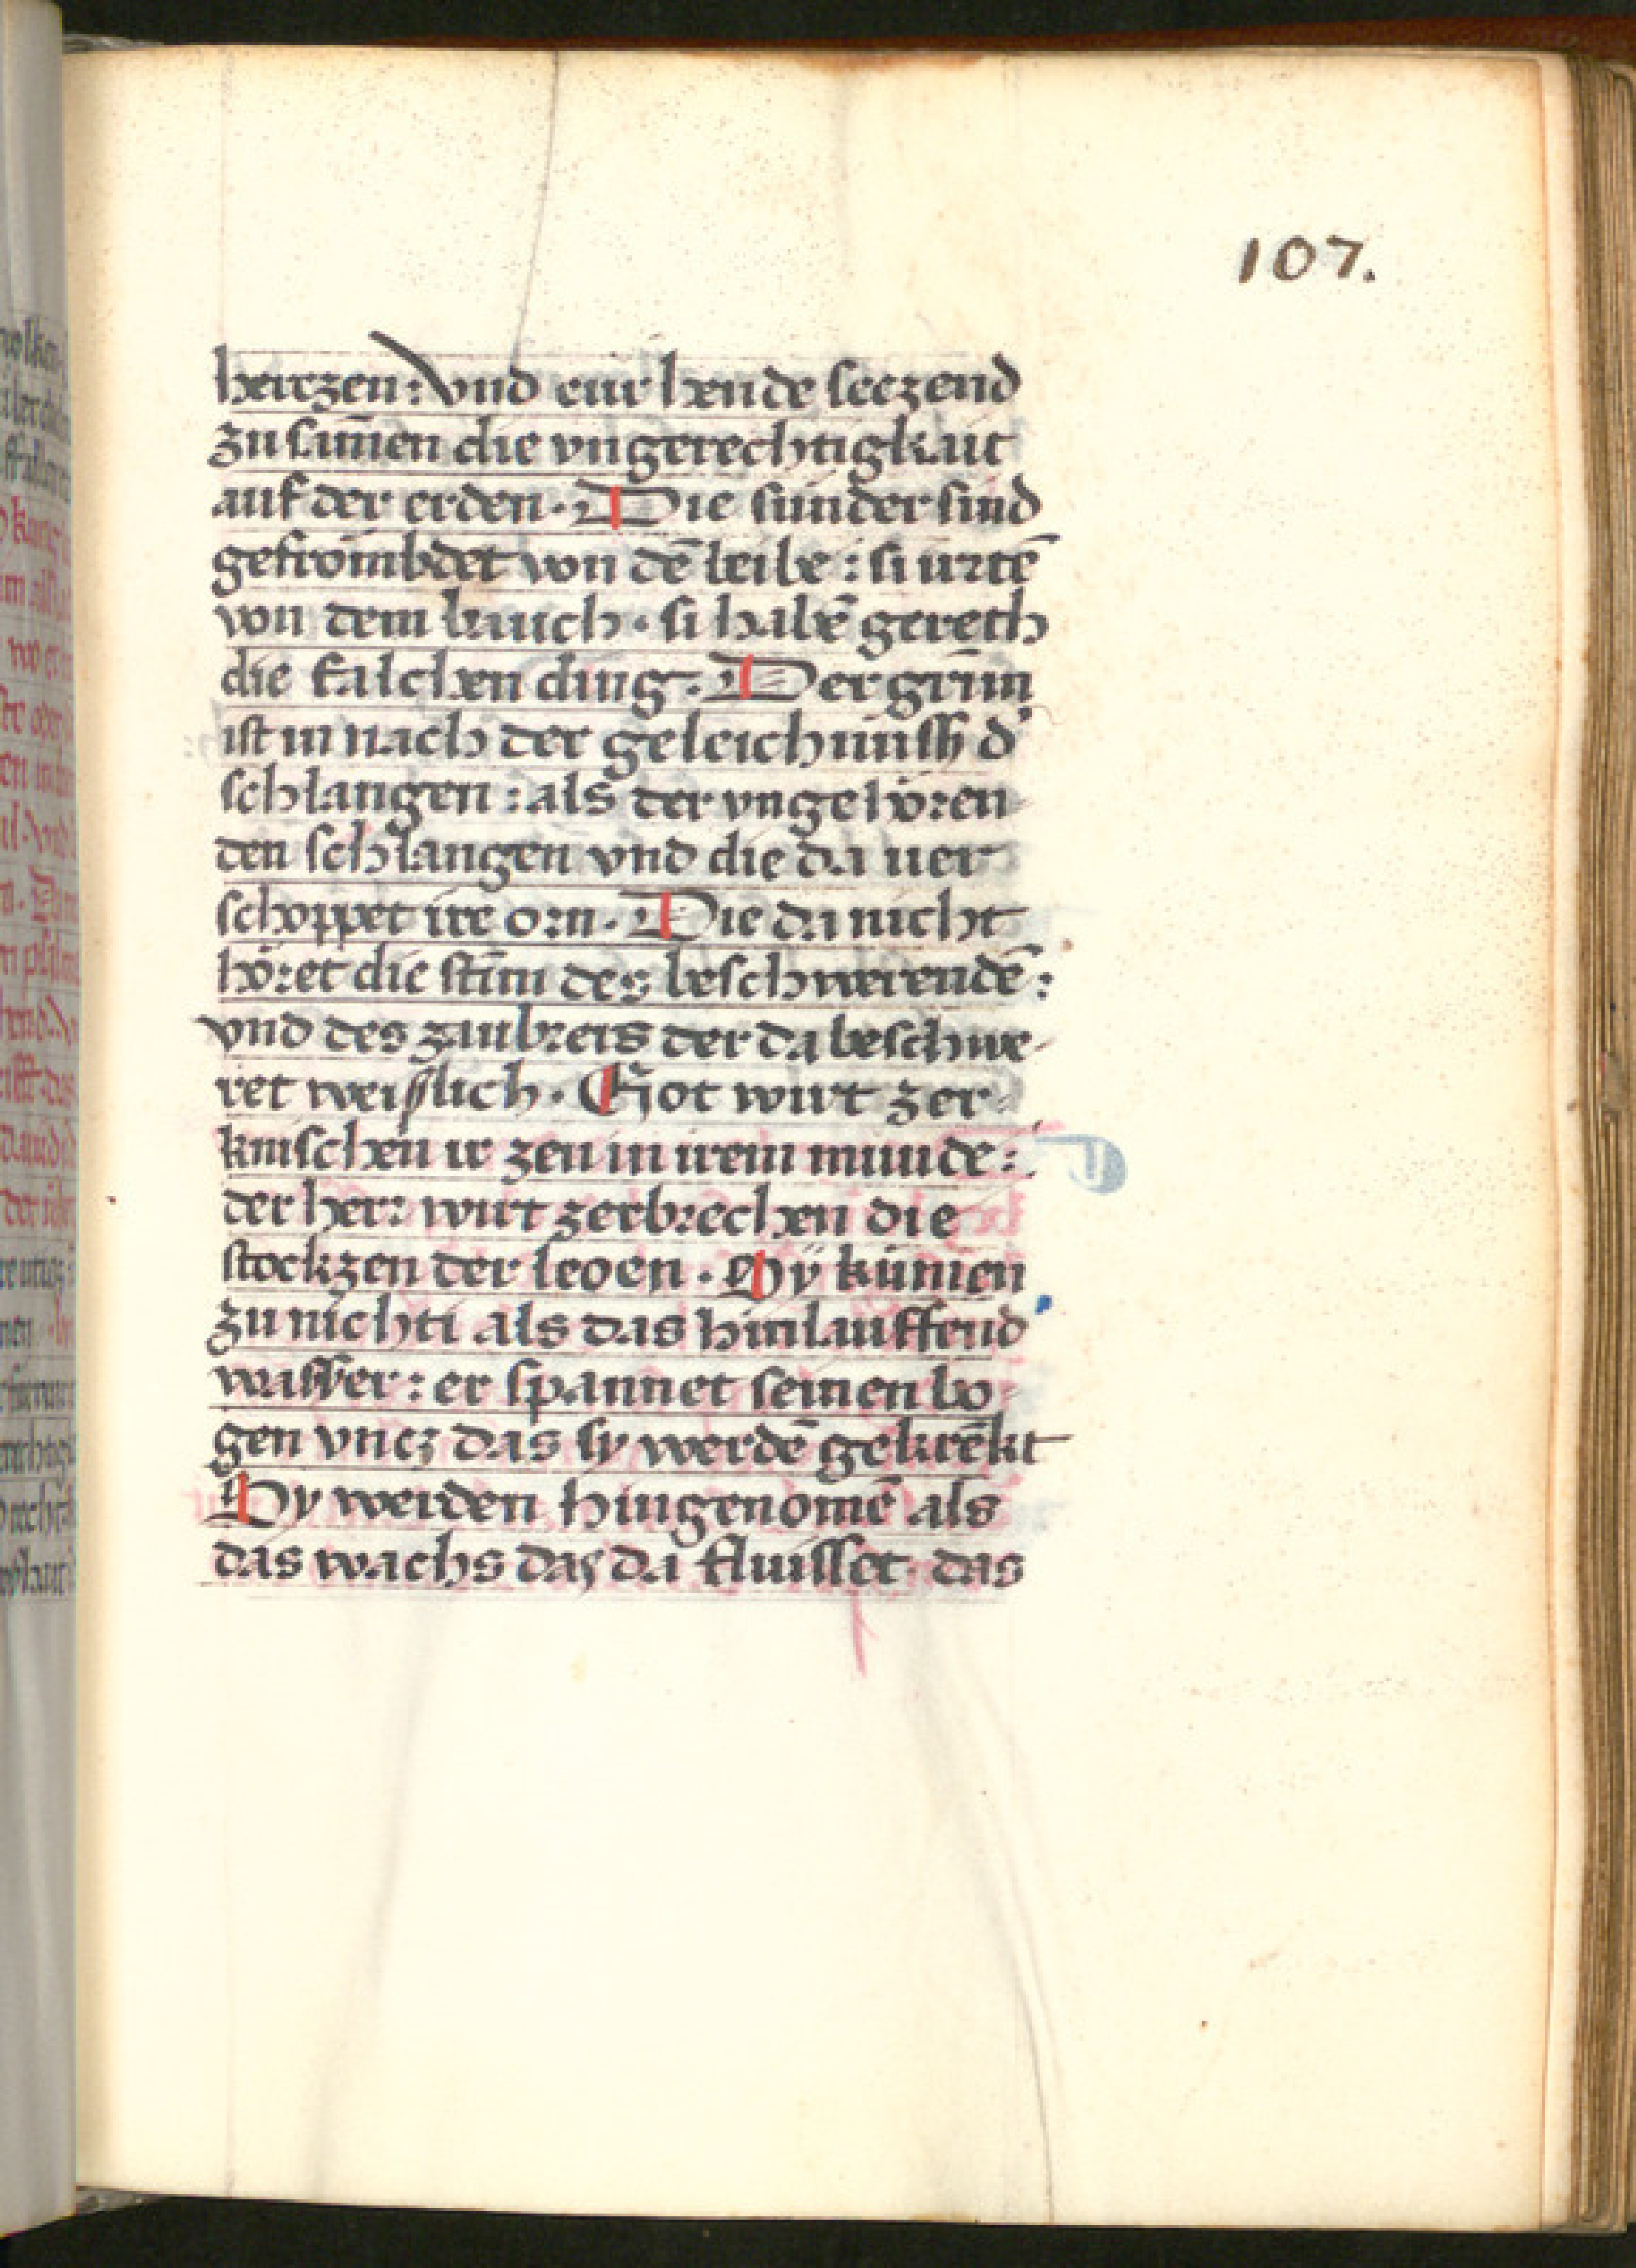 107.
herczen: Vnd eur hende seczend
zusam̄en die vngerechtigkait
auf der erden. Die sünder sind
gefrömbdet von dē leibe: si irrtē
von dem bauch. si habē gereth
die falschen ding. Der grim̄
ist in nach der geleichnussz d'
schlangen: als der vngehören
den schlangen vnd die da uer
schoppet ire orn. Die da nicht
höret die stim̄ des beschwerendē:
vnd des zaubrers der da beschwe-
ret weislich. Got wirt zer-
knischen ir zen in irem munde:
der herr wirt zerbrechen die
stockzen der leoen. Sÿ kümen
zu nichti als das hinlauffend
wasser: er spannet seinen bo-
gen vncz das sy werdē gekrēkt
Sy werden hingenomē als
das wachs das da fluisset. das